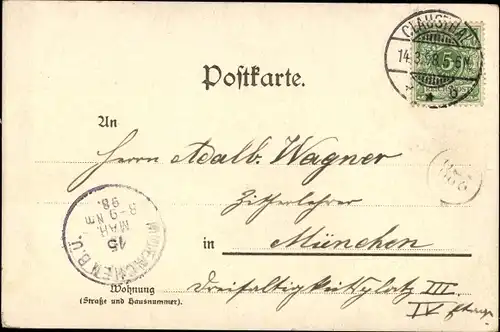 CLAUSTHAL
14.3.98. 5-6 N
Postkarte.
An
Herrn Adalb. Wagner
Zitherlehrer
in München
MUENCHEN B.Ü.
15
MAR.
8-9 Nm
98.
Wohnung
(Straße und Hausnummer).
Dreifaltigkeitsplatz III
IV